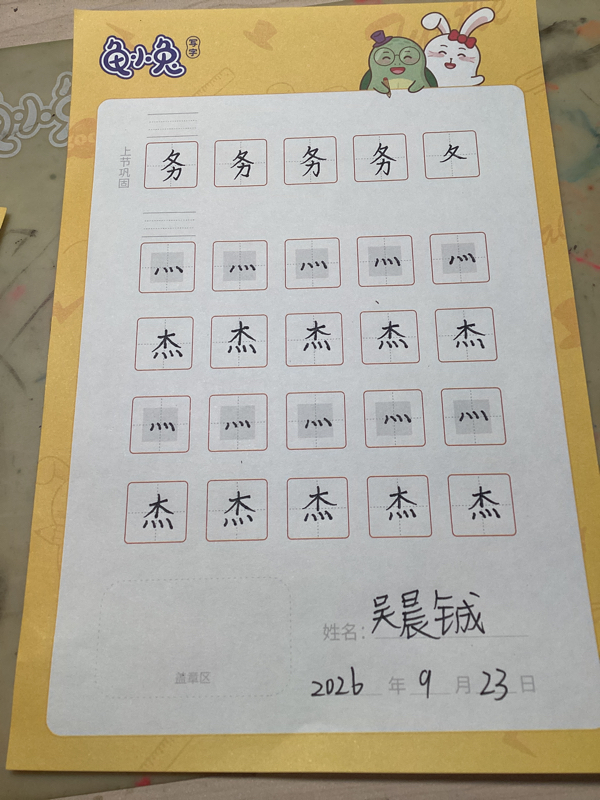 龟小兔 写字
上节巩固
务 务 务 务 夂
灬 灬 灬 灬 灬
杰 杰 杰 杰 杰
灬 灬 灬 灬 灬
杰 杰 杰 杰 杰
姓名: 吴晨铖
盖章区
2026 年 9 月 23 日